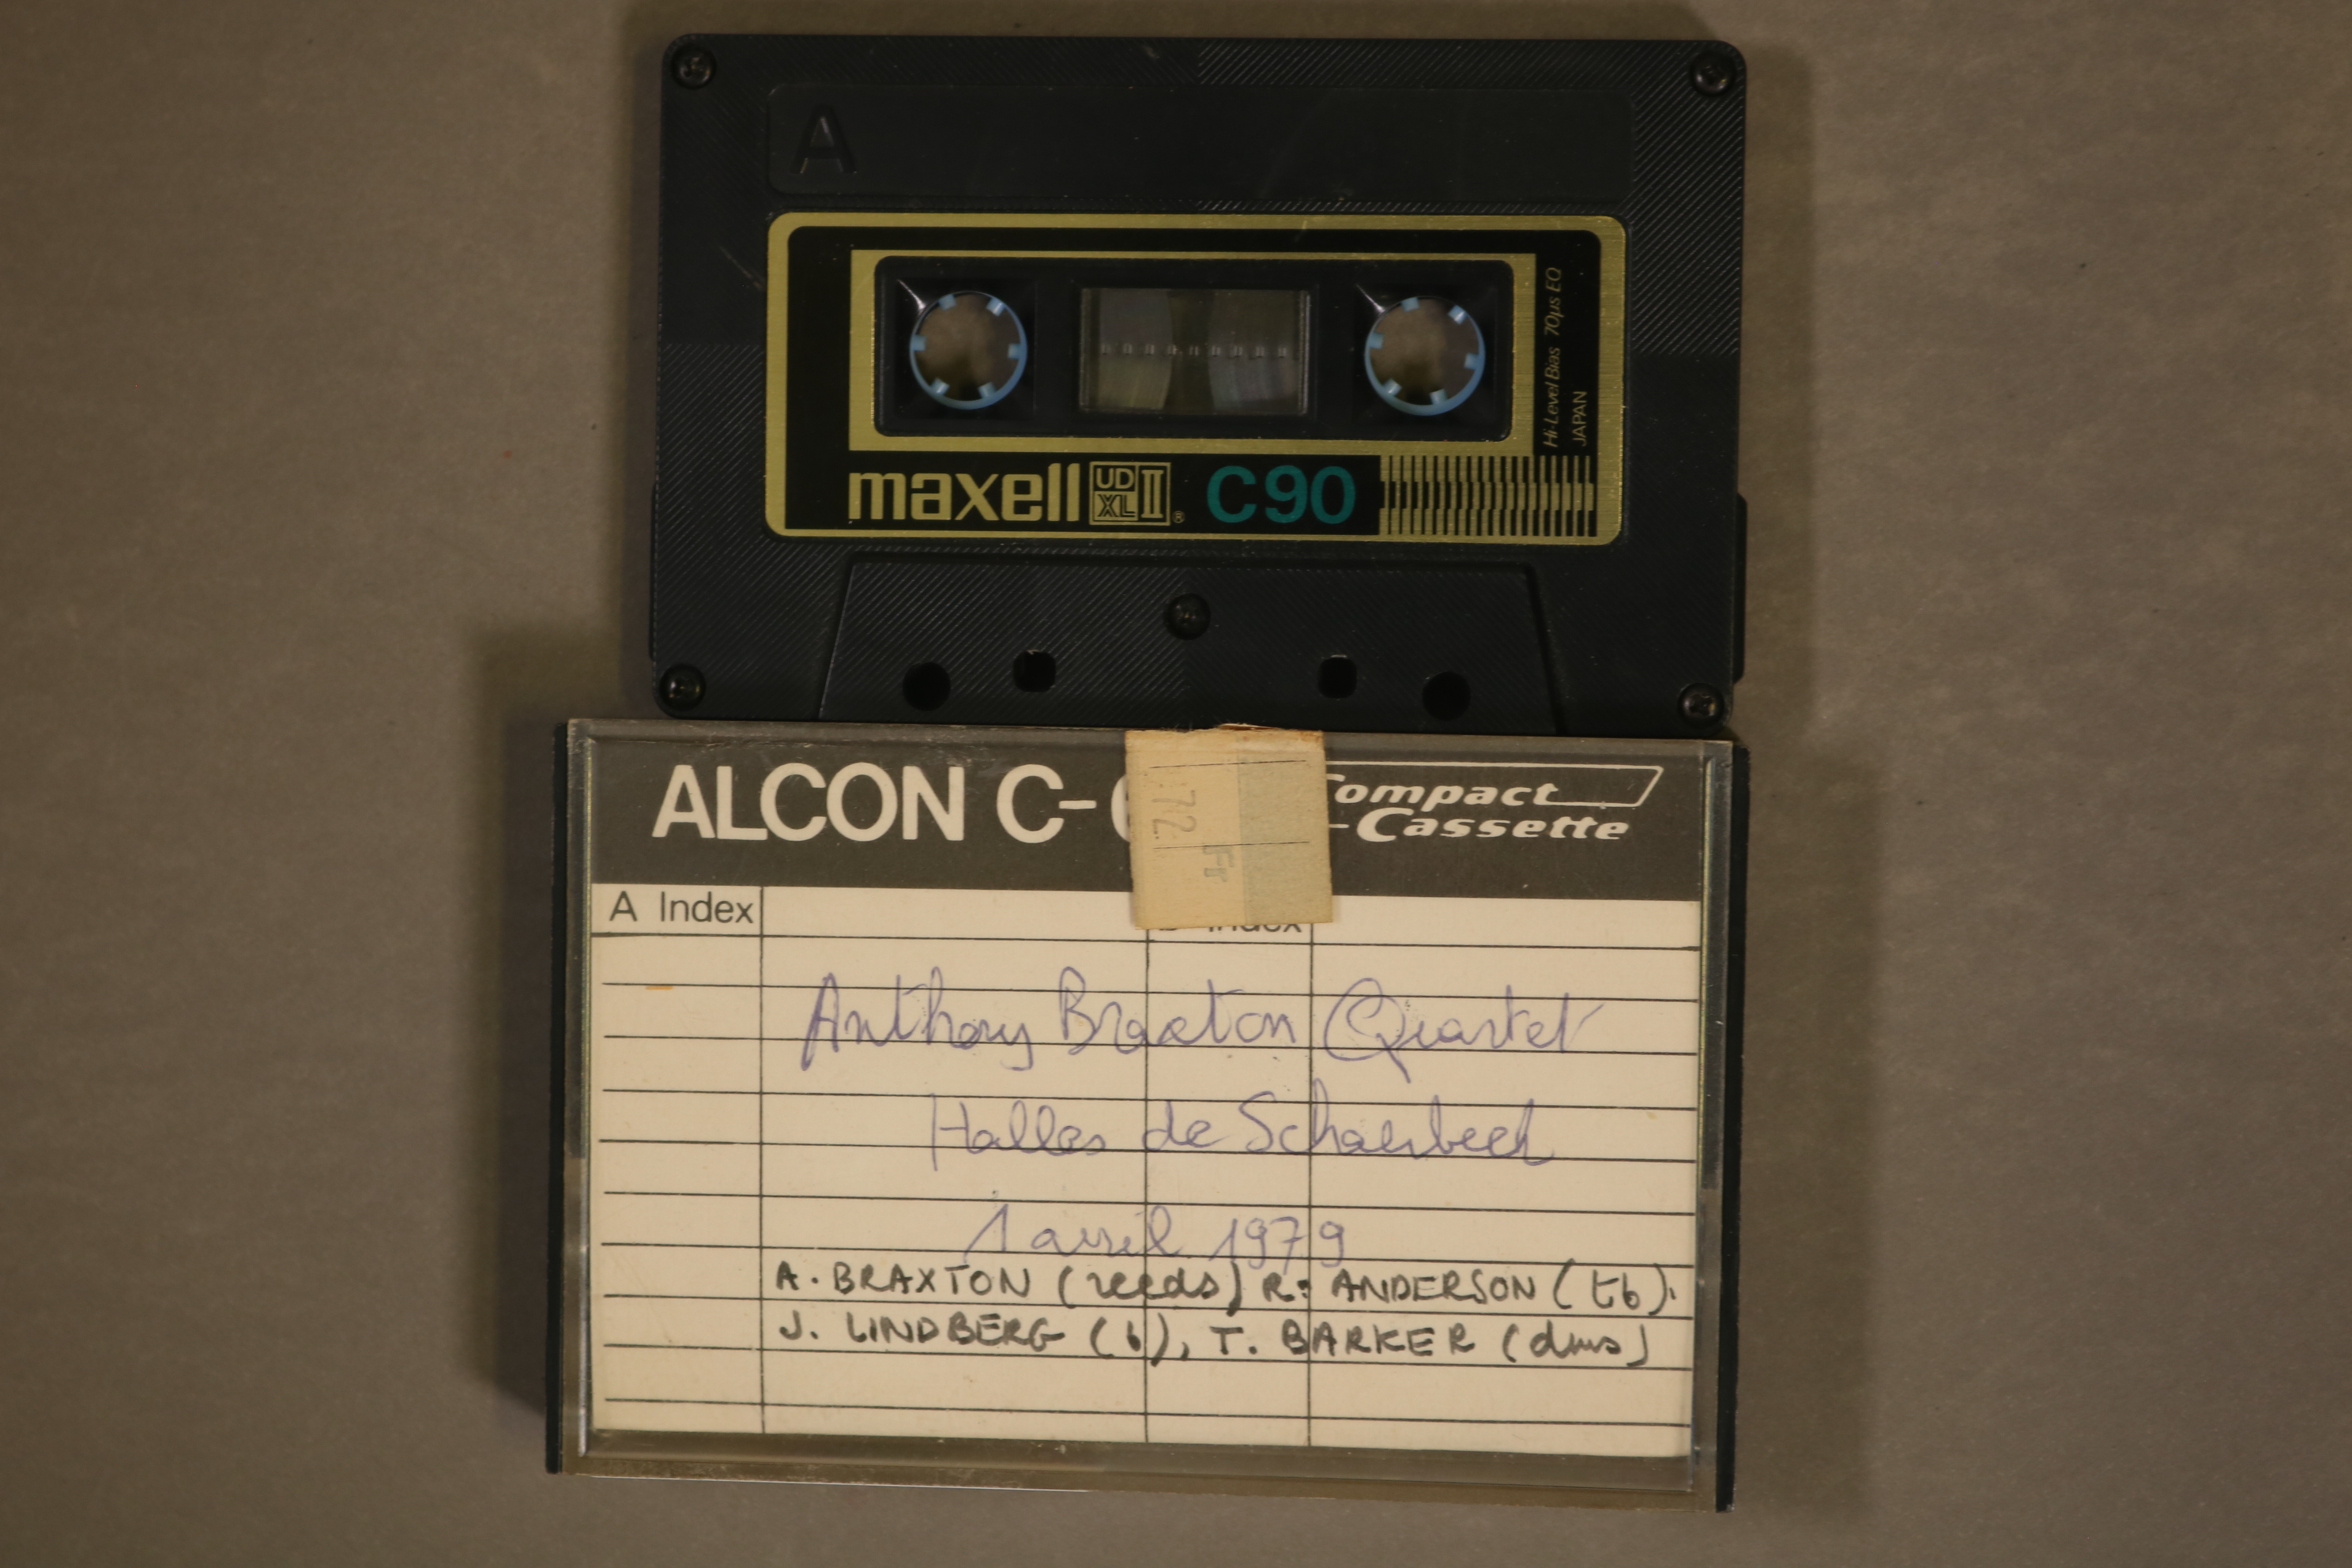 A
Hi-Level Bias 70μs EQ
JAPAN
maxell UD XL II ® C90
ALCON C-
Compact
-Cassette
72
Fr
A Index
Index
Anthony Braxton Quartet
Halles de Schaerbeek
1 avril 1979
A. BRAXTON (reeds) R. ANDERSON (tb).
J. LINDBERG (b), T. BARKER (dms)